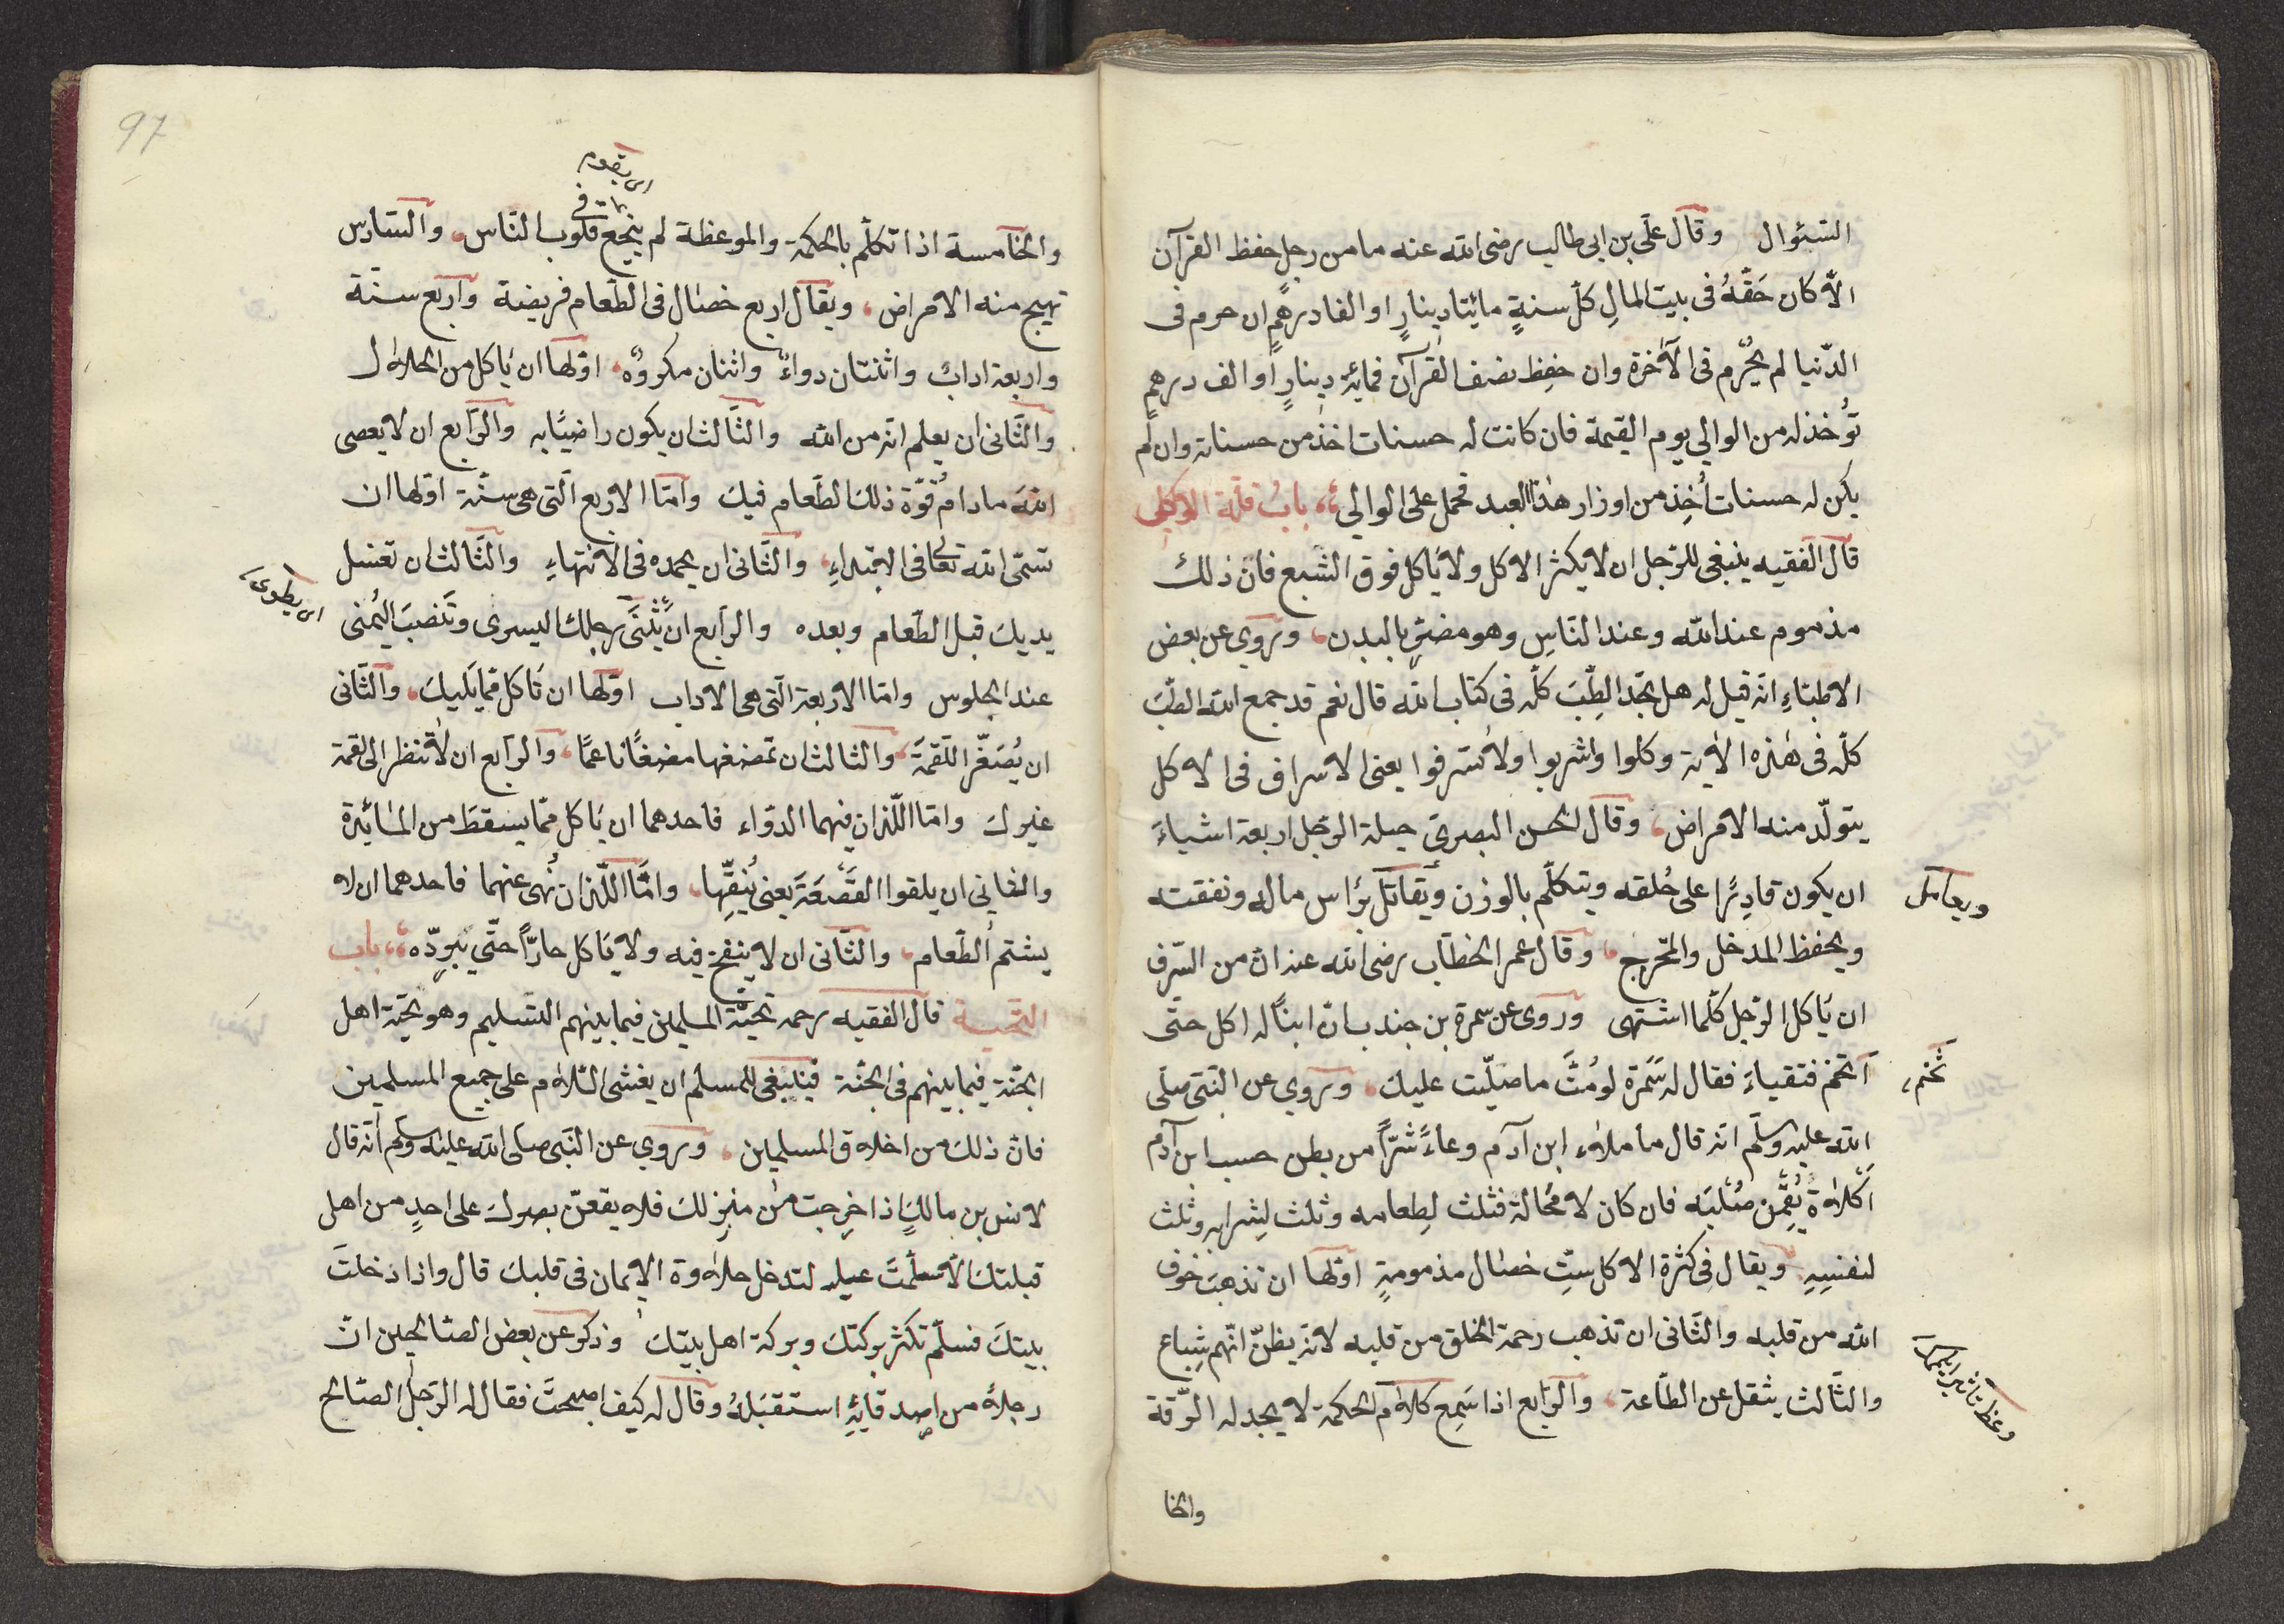 السّئوال وقال علّى بن ابى طالب رضى الله عنه ما من رجلٍ حفظ القرآن
الّا كان حَقّهُ فى بيت المالِ كلّ سنةٍ مائيتا دينارٍ او الفا درهمٍ ان حرم فى
الدّنيا لم يُحْرم فى الآخرة وان حفِظ نصف القرآن فمائة دينارٍ او الف درهمٍ
تؤُخذ له من الوالي يوم القيمة فان كانت له حسنات اخذ من حسناته وان لم
يكن له حسنات أُخِذ من اوزار هذا العبد فحمل على الوالي، باب قلّة الاكل
قال الفقيه ينبغى للرّجل ان لا يكثر الاكل ولا يَاكل فوق الشّبع فانّ ذلك
مذموم عند الله وعند النّاسِ وهو مضرٌّ بالبدن، وروي عن بعض
الاطبّاءِ انّه قيل له هل تجّد الطِّبَ كلّه فى كتاب الله قال نعم قد جمع الله الطّبّ
كلّه فى هٰذه الاٰية وكلوا واشربوا ولا تُسرفوا يعنى الاسراف فى الاكل
يتولّد منه الامراض، وقال الحسن البصرىّ حيلة الرّجل اربعة اشياءَ
ان يكون قادِرًا على خُلقه ويتكلّم بالوزن ويُقاتل برٔاس ماله ونفقته
ويعامل
ويحفظ المدخل والمخرج، وقال عمر الخطّاب رضى الله عنه انّ من السّرف
ان يَاكل الرّجل كلّما اشتهى وروى عن سمرة بن جندب انّ ابنًا له اكل حتّى
آتخم فتقياءَ فقال له سَمرة لو مُتَّ ما صلّيت عليك، وروي عن النّبىّ صلّى
تخم
الله عليه وسلّم انّه قال ما ملاٰء ابن آدم وعاءً شرّاً من بطن حسب ابن آدم
اَكلاٰة يُقِمْن صُلْبَه فان كان لا مُحالة فثلث لِطعامه وثلث لِشرابه وثلث
لنفسِهِ ويقال فى كثرة الاكل ستِّ خصٰال مذمومةٍ اوّلها ان تذهبَ خوف
الله من قلبه والثّانى ان تذهب رحمة الخلق من قلبه لانّه يظنّ انّهم شِباع
والثّالث يثقل عن الطّاعة، والرّابع اذا سَمِع كلاٰم الحكمة لا يجد له الرّقة
والخا
97
اى يقوم
والخآمسة اذا تكلّم بالحكمة والموعظة لم ينجع فى قلوب النّاس، والسّادس
تهيج منه الامراض، ويقال اربع خصٰال فى الطّعام فريضة واربع سنّة
واربعة ادابٌ واثنتان دواءٌ واثنان مكروهٌ، اوّلها ان يَاكل من الحلاٰل
والثّانى ان يعلم انّه من الله والثّالث ان يكون راضيًا به والرّابع ان لا يعصى
الله ما دام قوّة ذلك الطّعام فيك وامّا الاربع الّتى هى سنّة اوّلها ان
تسمّى الله تعالى فى الابتداءِ، والثّانى ان يحمده فى الانتهاءِ والثّالث ان تغسل
يديك قبل الطّعام وبعده والرّابع ان تُثْنى رجلك اليسرى وتَنصبَ اليُمنى
اى يطوى
عند الجلوس وامّا الاربعة الّتى هى الاداب اوّلها ان تَاكل ممّا يَليك، والثّانى
ان يُصَغّر اللّقمةَ، والثالث ان تمضغها مضغًا ناعمًا، والرّابع ان لا تنظر الى لقمة
غيرك وامّا اللّذان فيهما الدّواء فاحدهما ان يَاكل ممّا يسقط من المٰائدة
والثاني ان يلقوا القَصَعَةَ يعنى يُنقِّها، وامّا اللّذان نُهى عنهما فاحدهما ان لا
يشتم الطّعام، والثّانى ان لا ينفخ فيه ولا يَاكل حارّاً حتّي يبرّده، باب
التّحيّة قال الفقيه رحمه تحيّة المسلمين فيما بينهم التّسليم وهو تحيّة اهل
الجنّة فيما بينهم فى الجنّة فينبغى للمسلم ان يفشى السّلاٰم على جميع المسلمين
فانّ ذلك من اخلاٰق المسلمين، وروي عن النّبى صلّى الله عليه وسلّم انّه قال
لانس بن مالكٍ اذا خرجت من منزلك فلاٰ يقعنّ بصرك على احدٍ من اهل
قبلتك الّا سلّمتَ عيله لتدخل حلاٰوة الايمان فى قلبك قال واذا دخلتَ
بيتكَ فسلّم تكثر بركتك وبركة اهل بيتك وذكر عن بعض الصّالحين انّ
رجلاٰ من اصدقائِهِ استقبَلهُ وقال له كيف اصبحتَ فقال له الرّجل الصّالح